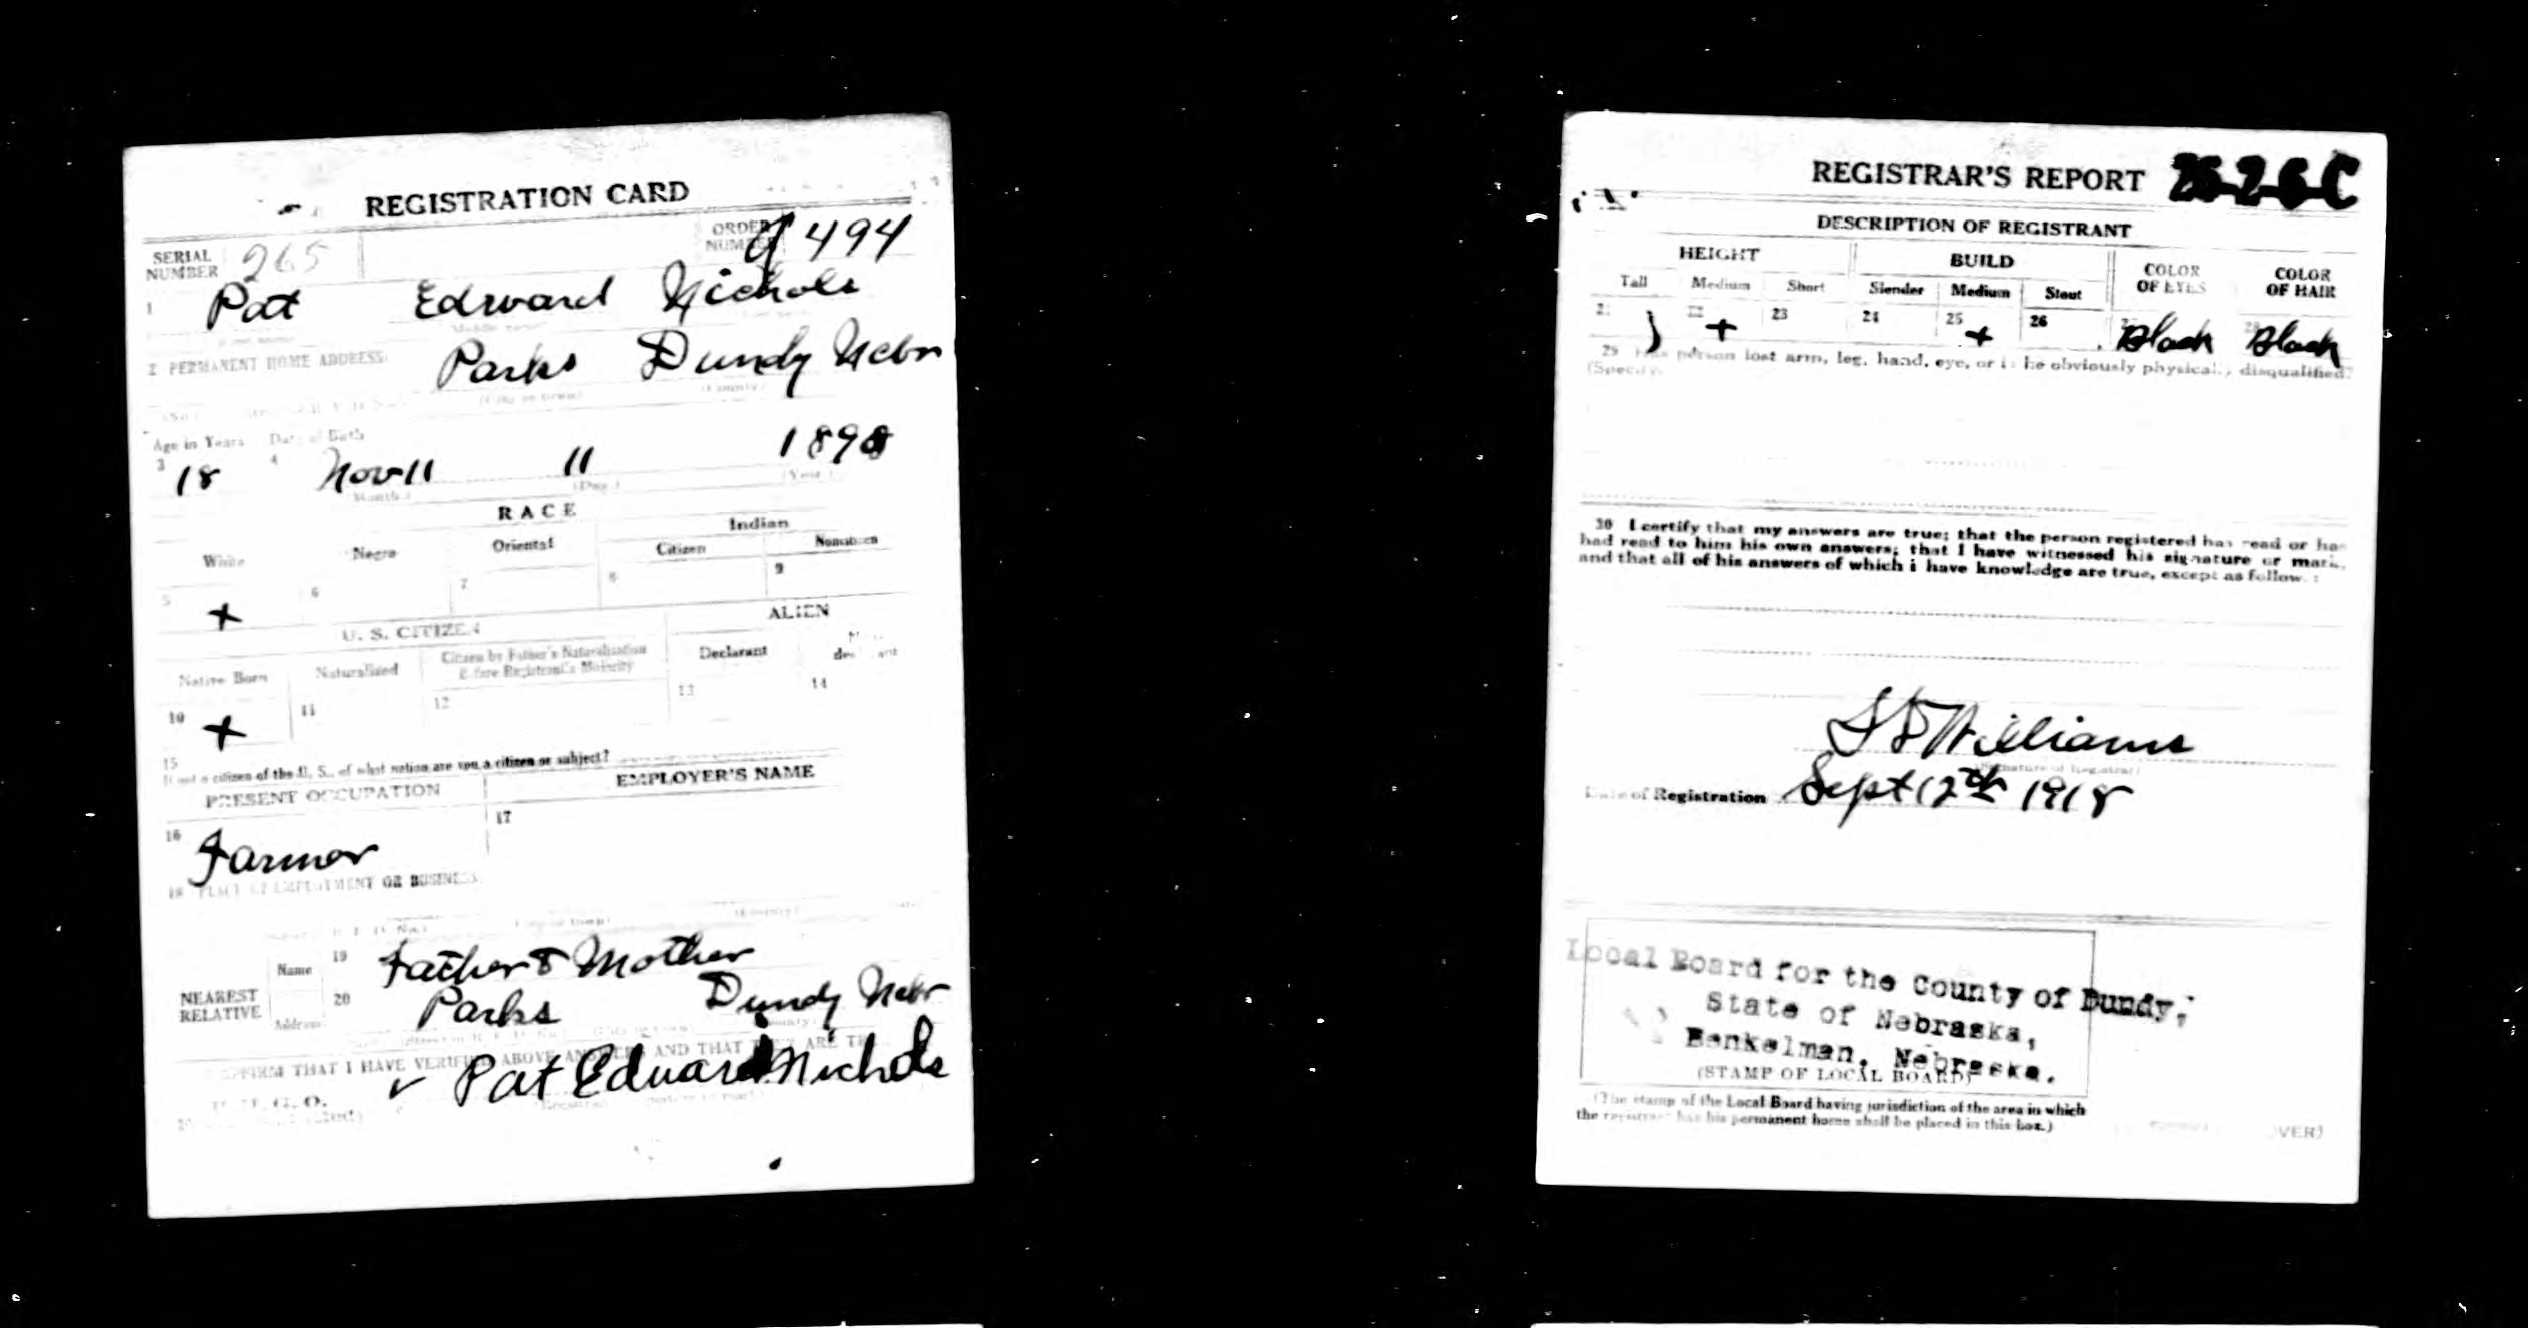 REGISTRATION CARD
SERIAL NUMBER 265 ORDER NUMBER 494
1 Pat Edward Nichols
2 PERMANENT HOME ADDRESS:
Parks Dundy Nebr
Age in Years Date of Birth
3 18 4 Nov 11 11 1898
(Month.) (Day.) (Year.)
RACE
White Negro Oriental Indian
Citizen Noncitizen
5 + 6 7 8 9
U. S. CITIZEN ALIEN
Native Born Naturalized Citizen by Father's Naturalization Before Registrant's Majority Declarant
10 + 11 12 13 14
15 If not a citizen of the U. S., of what nation are you a citizen or subject?
PRESENT OCCUPATION EMPLOYER'S NAME
16 Farmer 17
18 PLACE OF EMPLOYMENT OR BUSINESS:
NEAREST RELATIVE
Name 19 Father & Mother
Address 20 Parks Dundy Nebr
AFFIRM THAT I HAVE VERIFIED ABOVE ANSWERS AND THAT THEY ARE
Pat Edward Nichols
REGISTRAR'S REPORT 26-2-6-C
DESCRIPTION OF REGISTRANT
HEIGHT BUILD COLOR OF EYES COLOR OF HAIR
Tall Medium Short Slender Medium Stout
21 22 + 23 24 25 + 26 Black Black
29 Has person lost arm, leg, hand, eye, or is he obviously physically disqualified?
(Specify.)
30 I certify that my answers are true; that the person registered has read or has
had read to him his own answers; that I have witnessed his signature or mark,
and that all of his answers of which I have knowledge are true, except as follows:
Williams
(Signature of Registrar)
Date of Registration Sept 12th 1918
Local Board for the County of Dundy,
State of Nebraska,
Benkelman, Nebraska.
(STAMP OF LOCAL BOARD)
(The stamp of the Local Board having jurisdiction of the area in which
the registrant has his permanent home shall be placed in this box.)